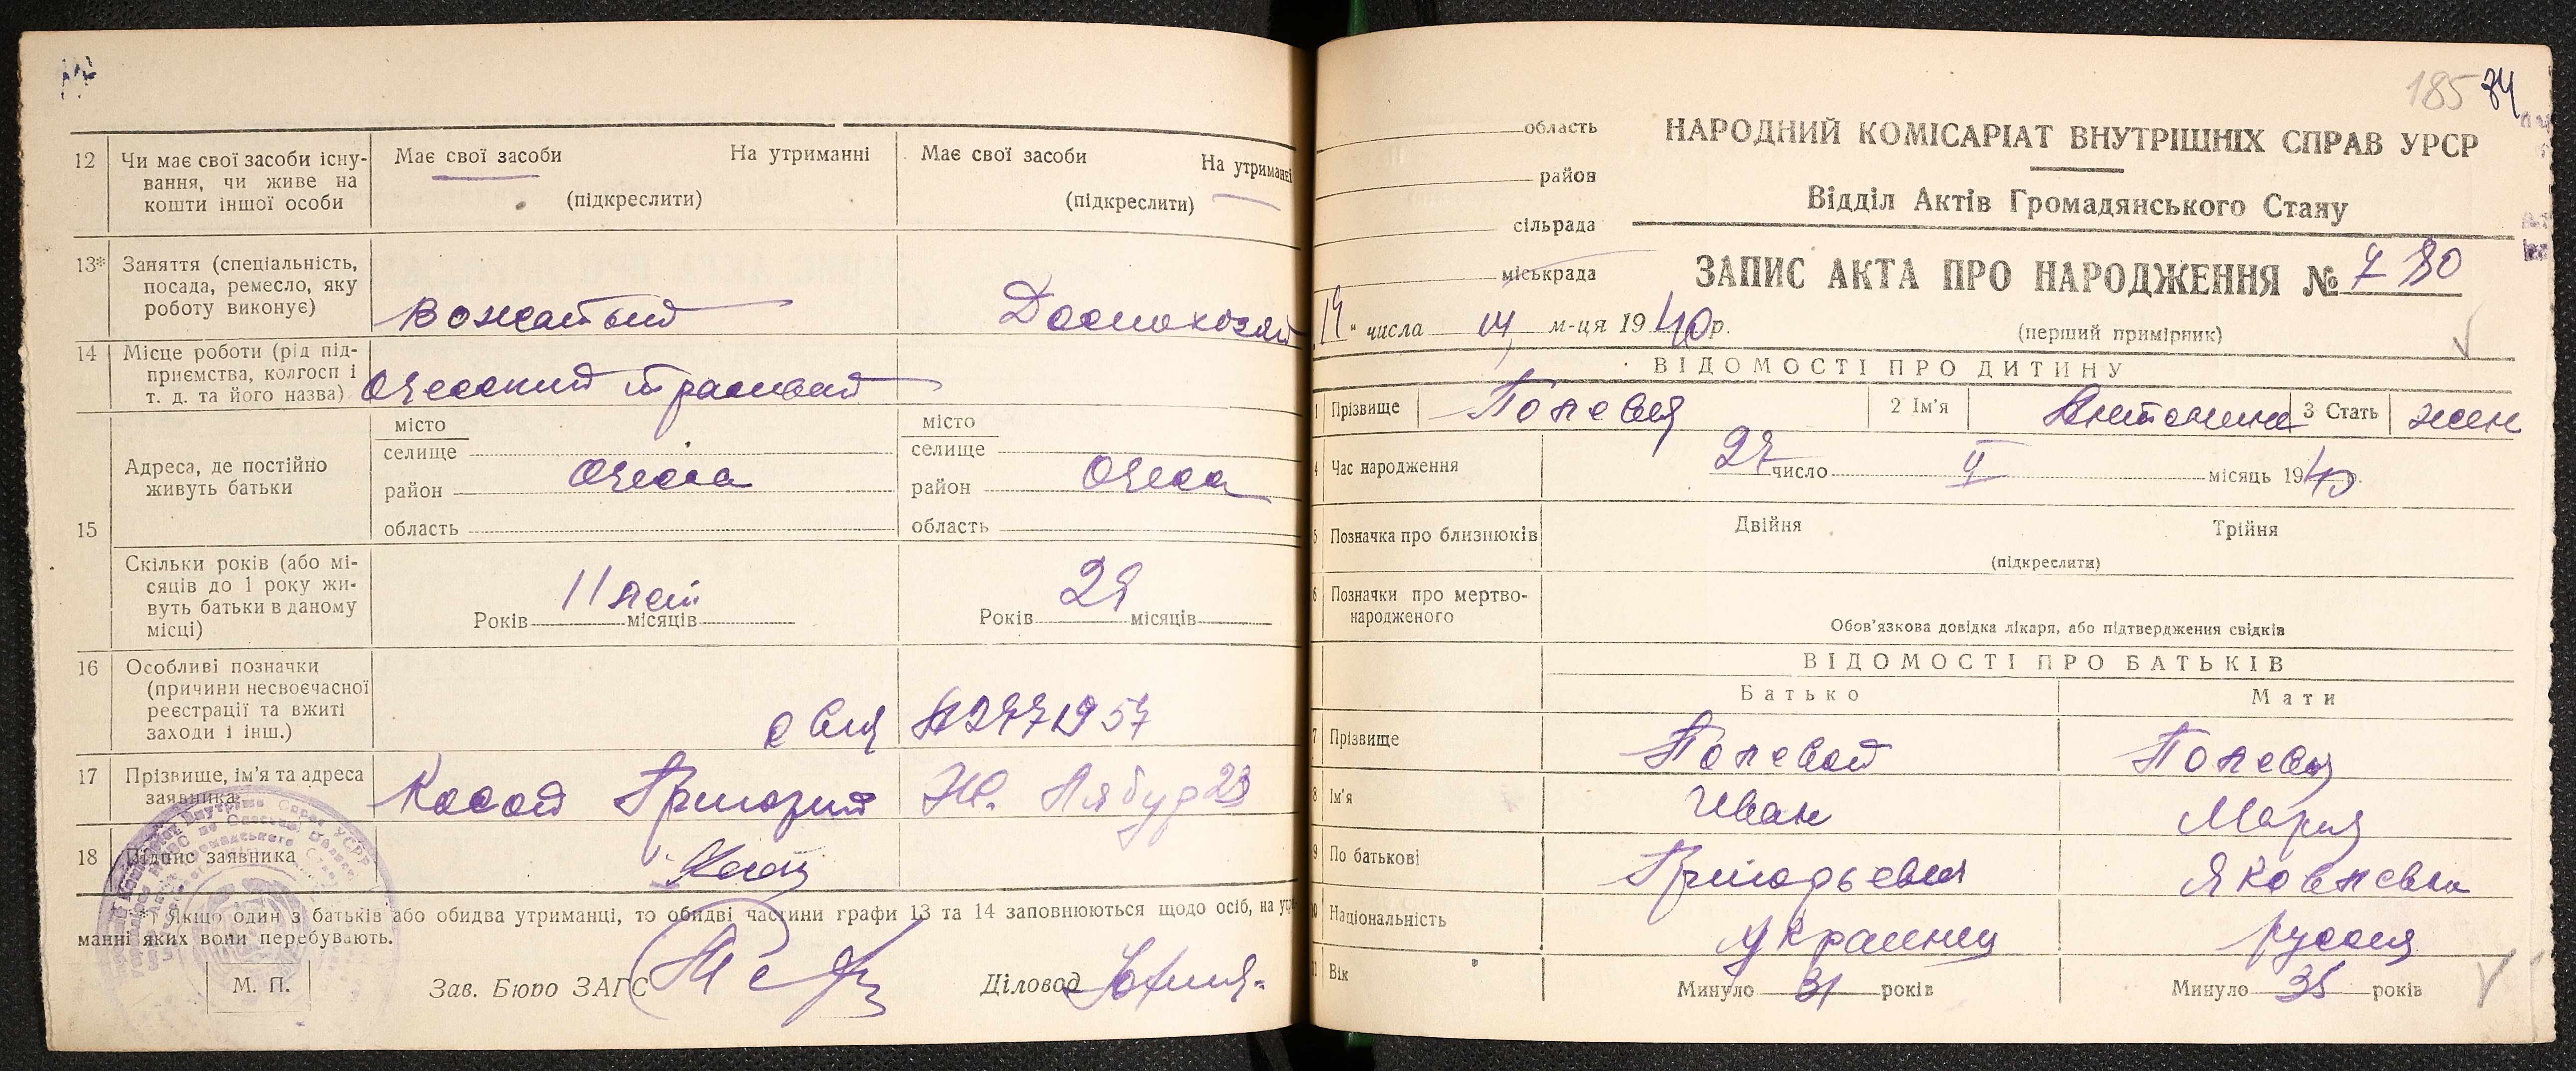 12
Чи має свої засоби існу-
вання, чи живе на
кошти іншої особи
Має свої засоби На утриманні
(підкреслити)
Має свої засоби На утриманні
(підкреслити)
13*
Заняття (спеціальність,
посада, ремесло, яку
роботу виконує)
Вожатый
Домохозяй
14
Місце роботи (рід під-
приємства, колгосп і
т. д. та його назва)
Одесский трамвай
15
Адреса, де постійно
живуть батьки
місто
селище
район Одесса
область
місто
селище
район Одесса
область
Скільки років (або мі-
сяців до 1 року жи-
вуть батьки в даному
місці)
11 лет
Років місяців
Років місяців
16
Особливі позначки
(причини несвоєчасної
реєстрації та вжиті
заходи і інш.)
17
Прізвище, ім'я та адреса
заявника
Косой Григорий
18
Підпис заявника
*) Якщо один з батьків або обидва утриманці, то обидві частини графи 13 та 14 заповнюються щодо осіб, на утри-
манні яких вони перебувають.
М. П.
Зав. Бюро ЗАГС
Діловод
185
область
район
сільрада
міськрада
НАРОДНИЙ КОМІСАРІАТ ВНУТРІШНІХ СПРАВ УРСР
Відділ Актів Громадянського Стану
ЗАПИС АКТА ПРО НАРОДЖЕННЯ № 780
числа м-ця 1940р.
(перший примірник)
ВІДОМОСТІ ПРО ДИТИНУ
1 Прізвище Полевая 2 Ім'я Антонина 3 Стать жен
4 Час народження 27 число II місяць 1940 р.
5 Позначка про близнюків Двійня Трійня
(підкреслити)
6 Позначки про мертво-
народженого
Обов'язкова довідка лікаря, або підтвердження свідків
ВІДОМОСТІ ПРО БАТЬКІВ
Батько Мати
7 Прізвище Полевой Полевая
8 Ім'я Иван Мария
9 По батькові Григорьевич Яковлевна
10 Національність Украинец русская
11 Вік Минуло 31 років Минуло 35 років